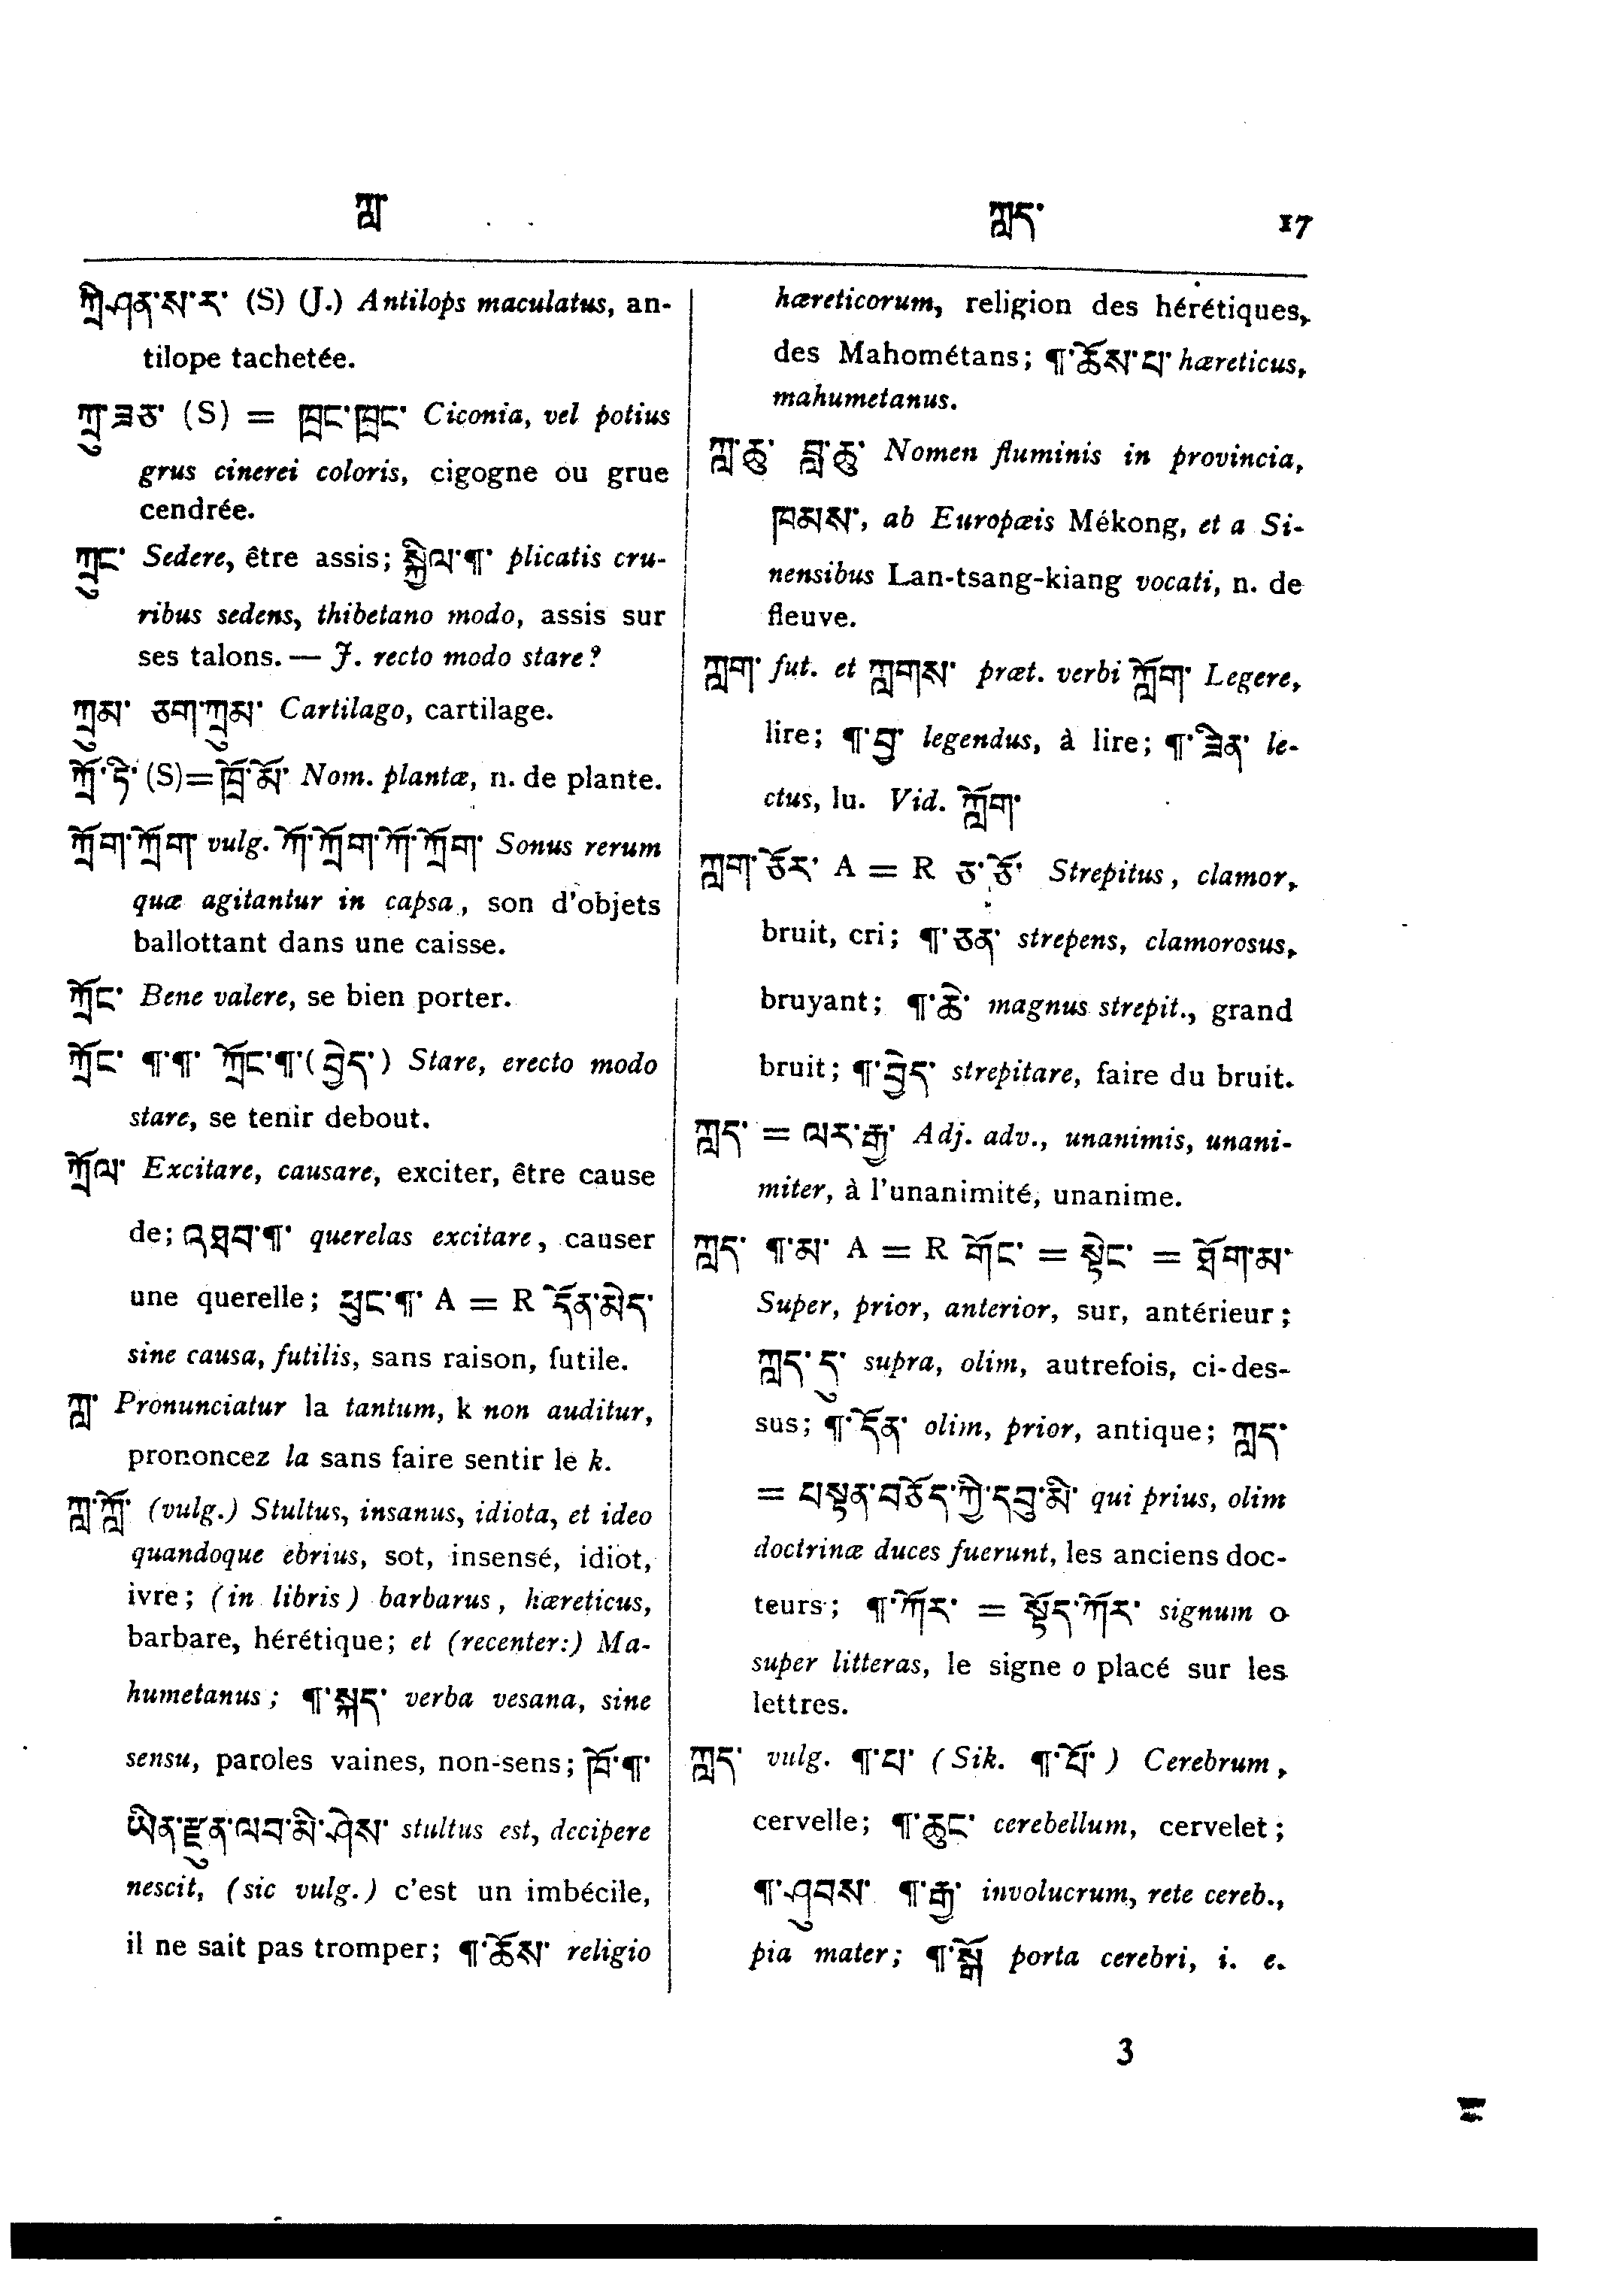 ཀླ་
ཀླད་ 17
ཀྲི་ཤན་ས་ར་ (S) (J.) Antilops maculatus, an-
tilope tachetée.
ཀྲུ་ཟཅ་ (S) = ཁྲང་ཁྲང་ Ciconia, vel potius
grus cinerei coloris, cigogne ou grue
cendrée.
ཀྲུང་ Sedere, être assis; སྐྱིལ་¶་ plicatis cru-
ribus sedens, thibetano modo, assis sur
ses talons. — J. recto modo stare?
ཀྲུམ་ ཅག་ཀྲུམ་ Cartilago, cartilage.
ཀྲོ་ཏི་ (S)=ཁྲོ་མོ་ Nom. plantæ, n. de plante.
ཀྲོག་ཀྲོག་ vulg. ཀོ་ཀྲོག་ཀོ་ཀྲོག་ Sonus rerum
quæ agitantur in capsa, son d'objets
ballottant dans une caisse.
ཀྲོང་ Bene valere, se bien porter.
ཀྲོང་ ¶་¶་ ཀྲོང་¶་(བྱེད་) Stare, erecto modo
stare, se tenir debout.
ཀྲོལ་ Excitare, causare, exciter, être cause
de; འཐབ་¶་ querelas excitare, causer
une querelle; ཕུང་¶་ A = R དོན་མེད་
sine causa, futilis, sans raison, futile.
ཀླ་ Pronunciatur la tantum, k non auditur,
prononcez la sans faire sentir le k.
ཀླ་ཀློ་ (vulg.) Stultus, insanus, idiota, et ideo
quandoque ebrius, sot, insensé, idiot,
ivre; (in libris) barbarus, hæreticus,
barbare, hérétique; et (recenter:) Ma-
humetanus; ¶་སྐད་ verba vesana, sine
sensu, paroles vaines, non-sens; ཁོ་¶་
ཡིན་རྫུན་ལབ་མི་ཤེས་ stultus est, decipere
nescit, (sic vulg.) c'est un imbécile,
il ne sait pas tromper; ¶་ཆོས་ religio
hæreticorum, religion des hérétiques,
des Mahométans; ¶་ཆོས་པ་ hæreticus,
mahumetanus.
ཀླ་ཆུ་ བླ་ཆུ་ Nomen fluminis in provincia,
ཁམས་, ab Europæis Mékong, et a Si-
nensibus Lan-tsang-kiang vocati, n. de
fleuve.
ཀླག་ fut. et ཀླགས་ præt. verbi ཀློག་ Legere,
lire; ¶་བྱ་ legendus, à lire; ¶་ཟིན་ le-
ctus, lu. Vid. ཀློག་
ཀླག་ཅོར་ A = R ཅ་ཅོ་ Strepitus, clamor,
bruit, cri; ¶་ཅན་ strepens, clamorosus,
bruyant; ¶་ཆེ་ magnus strepit., grand
bruit; ¶་བྱེད་ strepitare, faire du bruit.
ཀླད་ = ལར་རྒྱ་ Adj. adv., unanimis, unani-
miter, à l'unanimité, unanime.
ཀླད་ ¶་མ་ A = R གོང་ = སྟེང་ = ཐོག་མ་
Super, prior, anterior, sur, antérieur;
ཀླད་དུ་ supra, olim, autrefois, ci-des-
sus; ¶་དོན་ olim, prior, antique; ཀླད་
= པསྟན་བཅོད་ཀྱི་དབུ་མི་ qui prius, olim
doctrinæ duces fuerunt, les anciens doc-
teurs; ¶་ཀོར་ = སྟོད་ཀོར་ signum o
super litteras, le signe o placé sur les
lettres.
ཀླད་ vulg. ¶་པ་ (Sik. ¶་པོ་) Cerebrum,
cervelle; ¶་ཆུང་ cerebellum, cervelet;
¶་ཤུབས་ ¶་རྒྱ་ involucrum, rete cereb.,
pia mater; ¶་སྒོ porta cerebri, i. e.
3